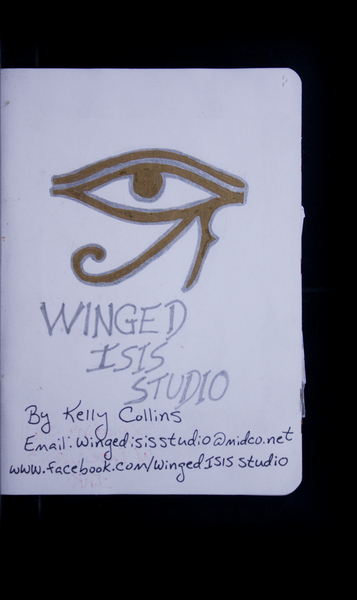 WINGED
ISIS
STUDIO
By Kelly Collins
Email: wingedisisstudio@midco.net
www.facebook.com/wingedISISstudio